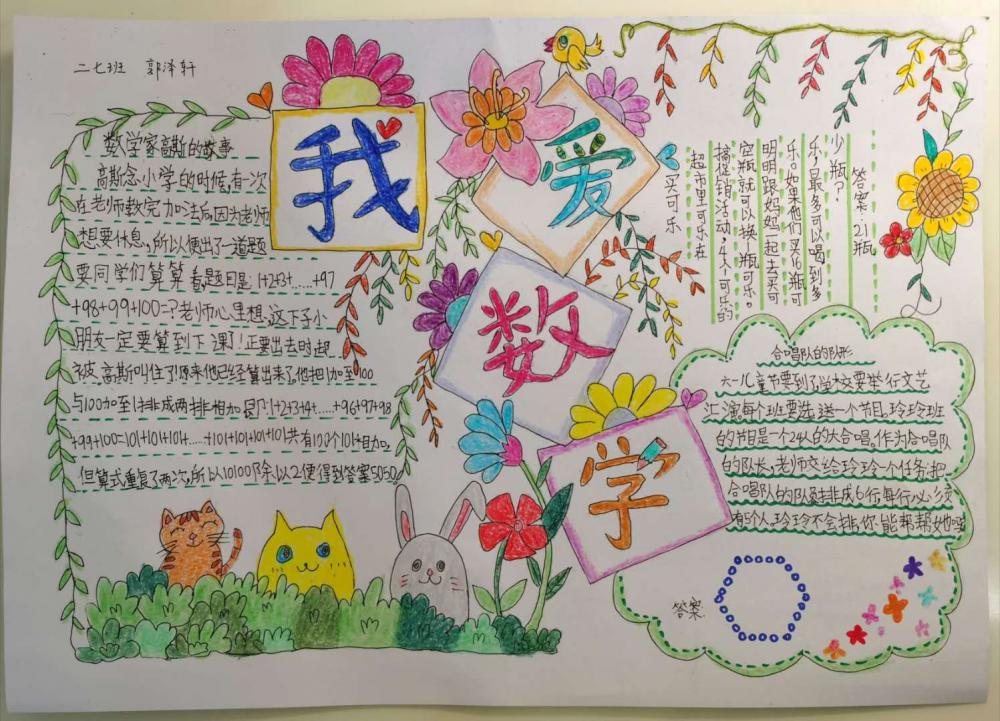 二七班 郭泽轩
我
爱
数
学
数学家高斯的故事
高斯念小学的时候,有一次
在老师教完加法后,因为老师
想要休息,所以便出了一道题
要同学们算算看,题目是:1+2+3+……+97
+98+99+100=?老师心里想:这下子小
朋友一定要算到下课了!正要出去时,却
被高斯叫住了!原来他已经算出来了。他把1加至100
与100加至1排成两排相加,即:1+2+3+4+……+96+97+98
+99+100=101+101+101+……+101+101+101+101共有100个101相加,
但算式重复了两次,所以10100除以2便得到答案5050。
买可乐
超市里可乐在
搞促销活动,4个可乐的
空瓶就可以换1瓶可乐。
明明跟妈妈一起去买可
乐。如果他们买16瓶可
乐,最多可以喝到多
少瓶?
答案:21瓶
合唱队的队形
六一儿童节要到了,学校要举行文艺
汇演,每个班要选送一个节目,玲玲班
的节目是一个24人的大合唱。作为合唱队
的队长,老师交给玲玲一个任务:把
合唱队的队员排成6行,每行必须
有5个人。玲玲不会排,你能帮帮她吗
答案: